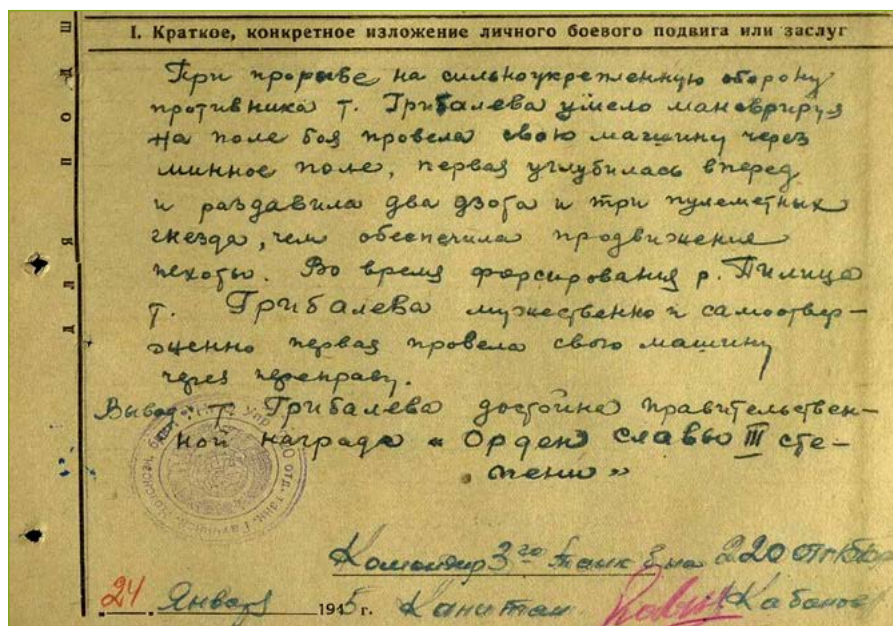 I. Краткое, конкретное изложение личного боевого подвига или заслуг
При прорыве на сильноукрепленную оборону
противника т. Грибалева умело мановрируя
на поле боя провела свою машину через
минное поле, первая углубилась вперед
и раздавила два дзота и три пулеметных
гнезда, чем обеспечила продвижения
пехоты. Во время форсирования р. Пилица
т. Грибалева мужественно и самоотвер-
женно первая провела свою машину
через переправу.
Вывод: т. Грибалева достойна правительствен-
ной награда « Орден славы III сте-
пени »
Командир 3го танк б-на 220 отбр
24 Января 1945 г. Капитан Кабанов
для подшив